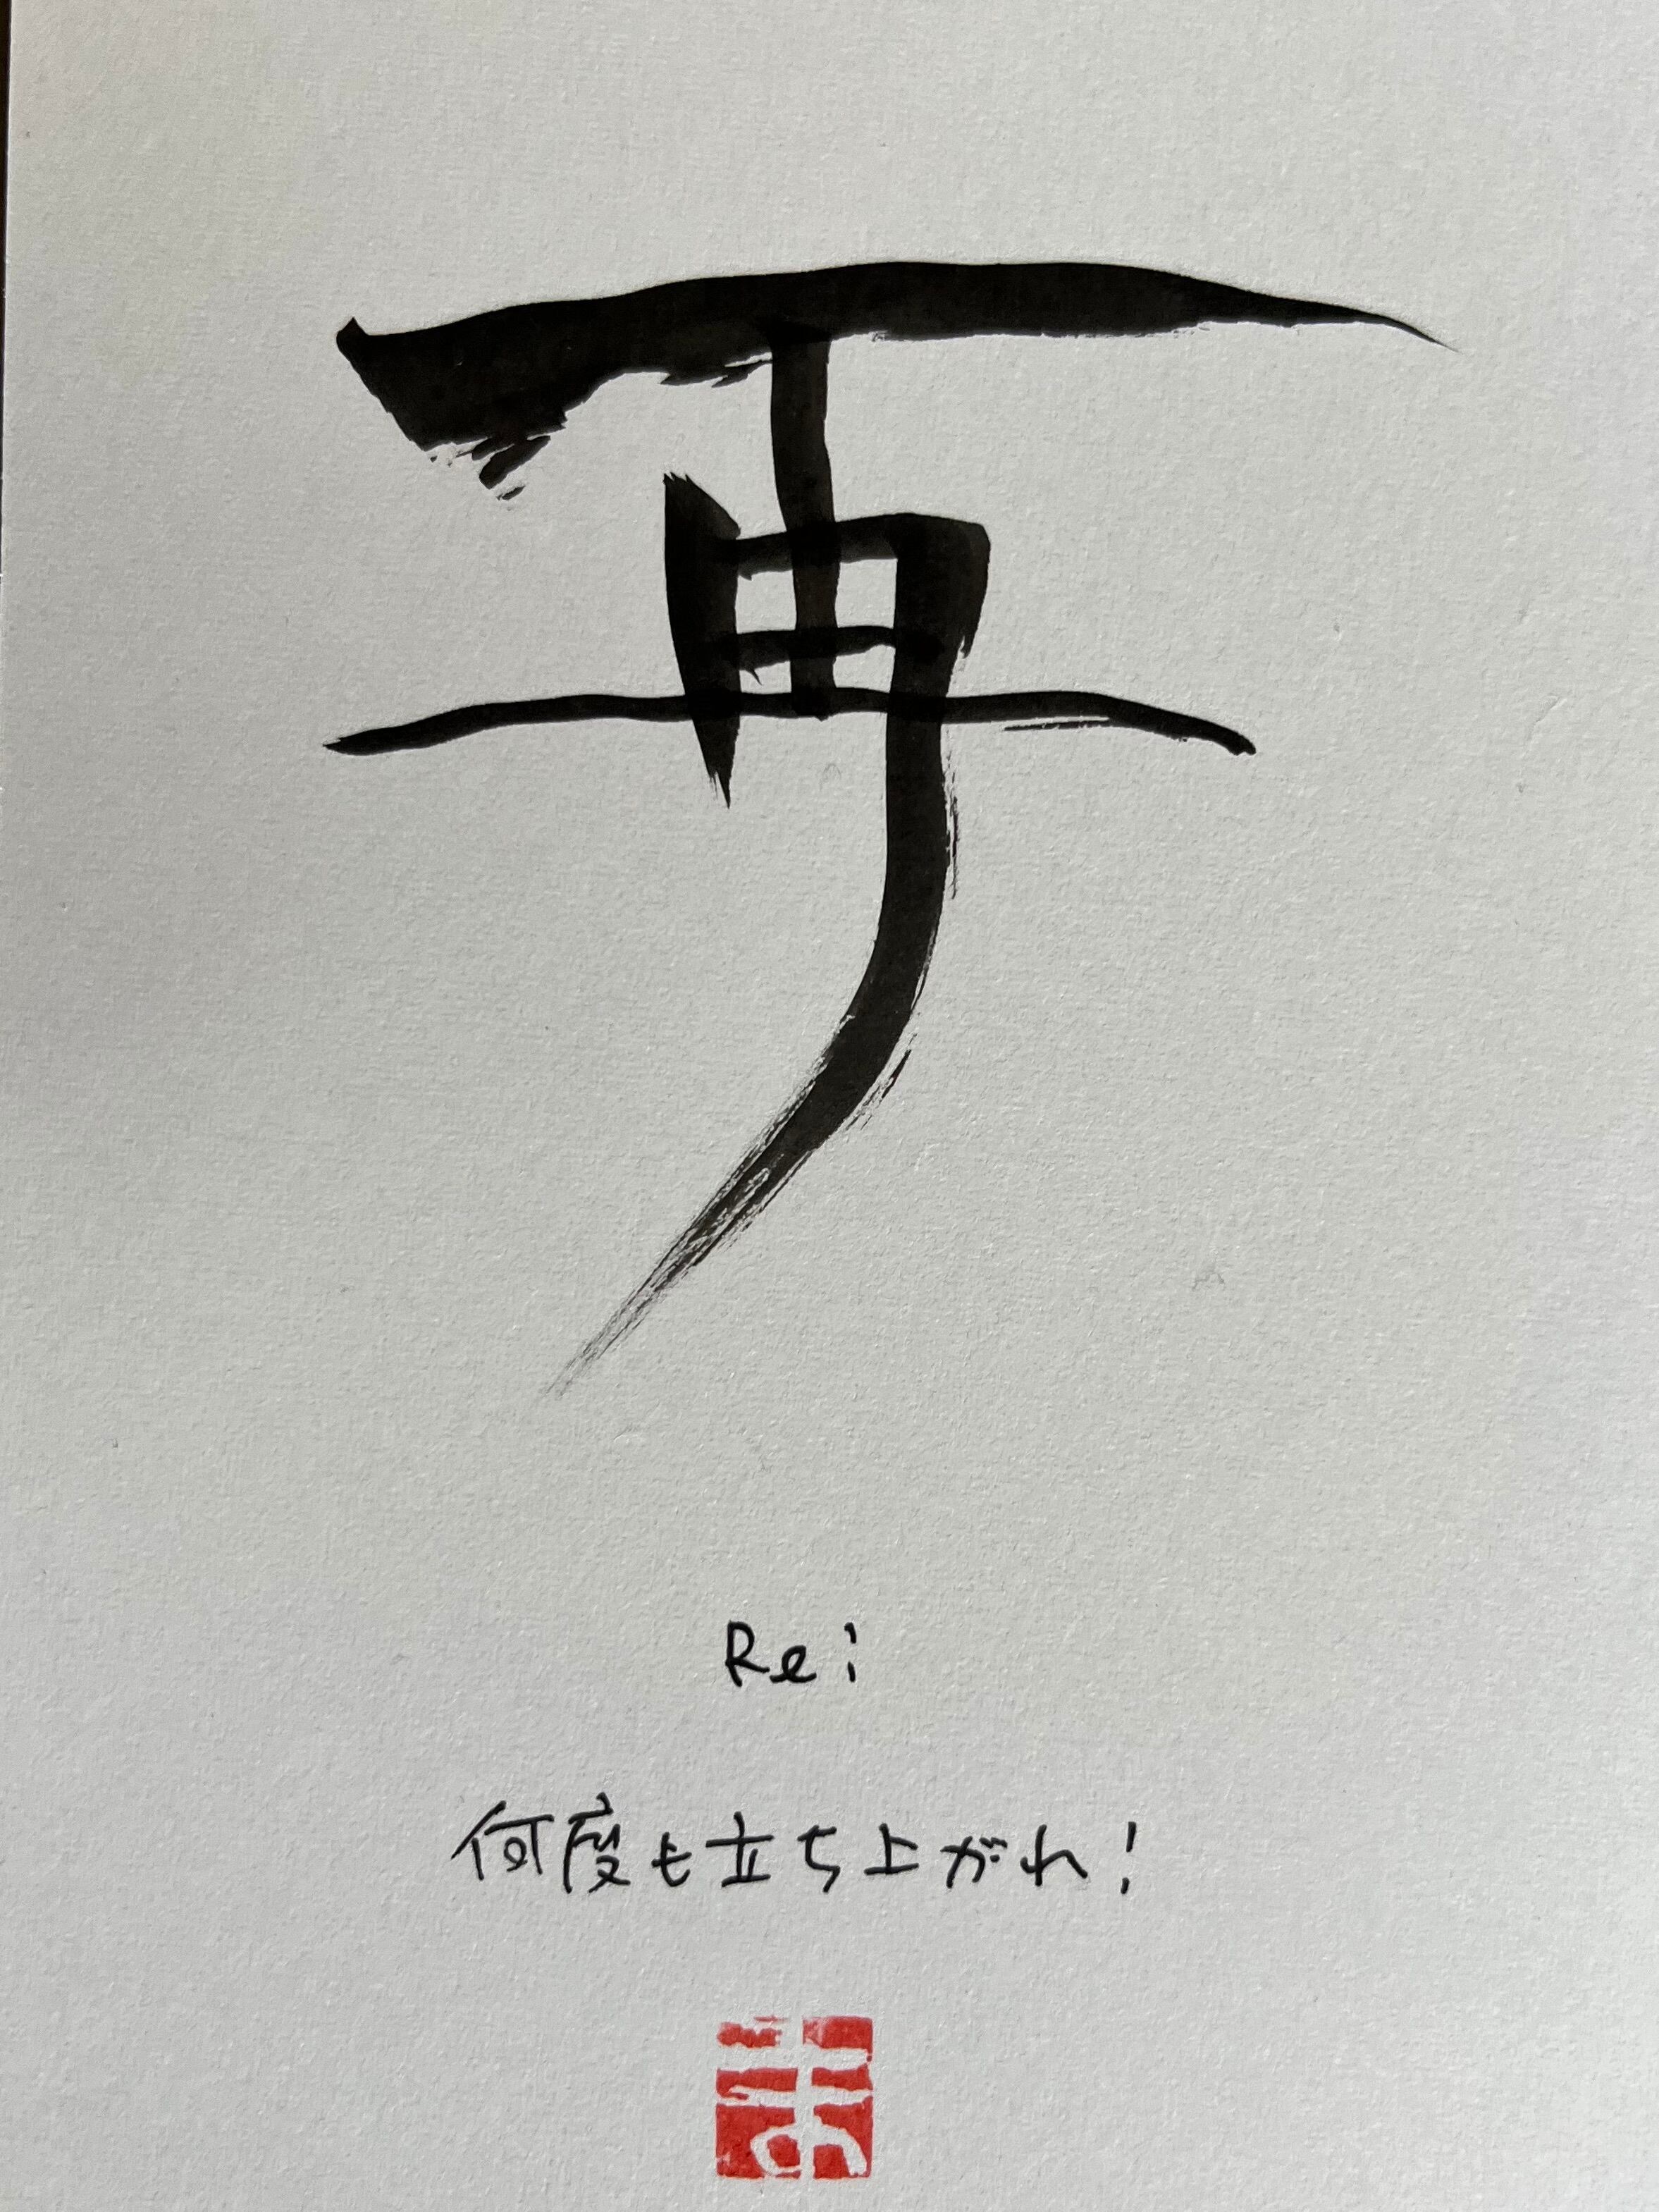 再
Re:
何度も立ち上がれ!
ま